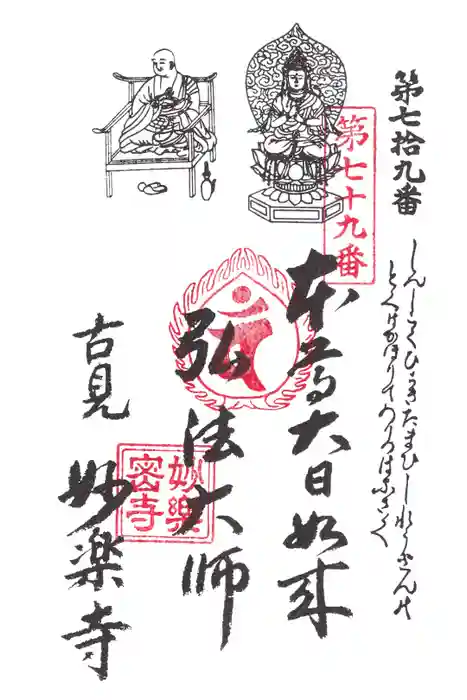 第七拾九番
しんしこくひらきたまひしれうざんの
とくはかほりてのりのはなさく
第七十九番
本尊大日如来
弘法大師
古見
妙楽寺
妙樂
密寺